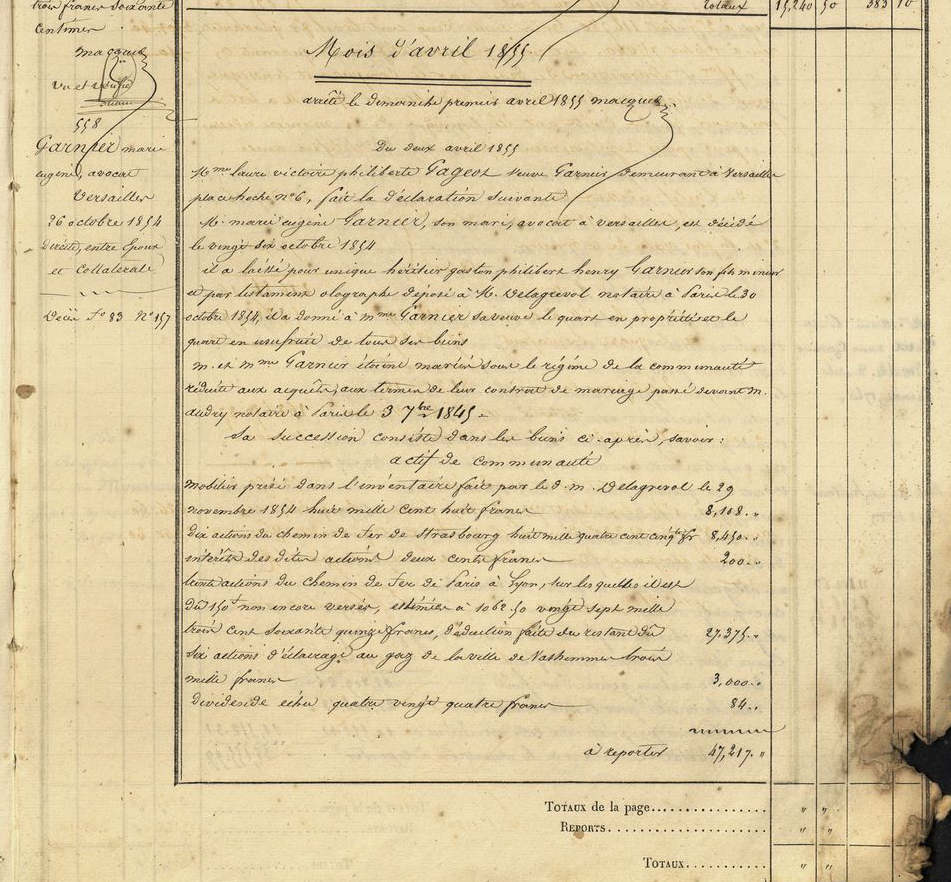 trois francs soixante
centimes
macquet
Vu et vérifié
558
Garnier marie
eugène, avocat
Versailles
26 octobre 1854
Directe, entre Epoux
et Collatérale
Décès F° 83 N° 157
Totaux 15,240 50 383 10
Mois d'avril 1855
arrêté le Dimanche premier avril 1855 macquet
Du deux avril 1855
Mme laure victoire philiberte Gageot veuve Garnier demeurant à Versailles
place hoche n° 6, fait la déclaration suivante
M. marie eugène Garnier, son mari, avocat à versailles, est décédé
le vingt six octobre 1854
il a laissé pour unique héritier gaston philibert henry Garnier son fils mineur
et par testament olographe déposé à M. Delagrevol notaire à Paris le 30
octobre 1854, il a donné à mme Garnier sa veuve le quart en propriété et le
quart en usufruit de tous ses biens
m. et mme Garnier étoient mariés sous le régime de la communauté
réduite aux acquêts, aux termes de leur contrat de mariage passé devant m.
audry notaire à Paris le 3 7bre 1845.
Sa succession consiste dans les biens ci-après, savoir :
actif de communauté
mobilier prisé dans l'inventaire fait par le d. m. Delagrevol le 29
novembre 1854 huit mille cent huit francs 8,108. "
dix actions du chemin de fer de Strasbourg huit mille quatre cent cinqte fr 8,450. "
intérêts des dites actions deux cents francs 200. "
trente actions du Chemin de fer de Paris à Lyon, sur lesquelles il est
dû 150f non encore versés, estimées à 1062.50 vingt sept mille
trois cent soixante quinze francs, déduction faite du restant dû 27,375. "
six actions d'éclairage au gaz de la ville de Vazhemmes trois
mille francs 3,000. "
dividende échu quatre vingt quatre francs 84. "
à reporter 47,217. "
Totaux de la page............... " "
Reports........................ " "
Totaux............ " "